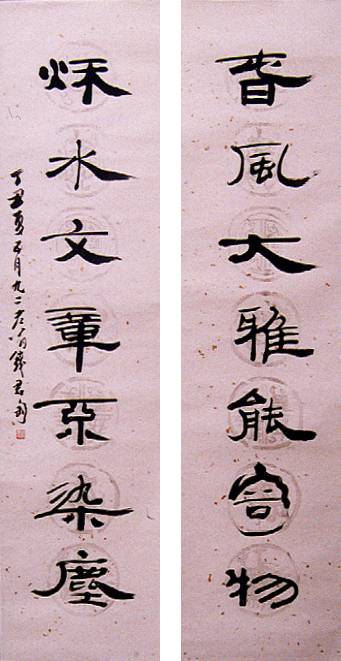 春風大雅能容物
秌水文章不染塵
丁丑夏五月九二老人錢君匋